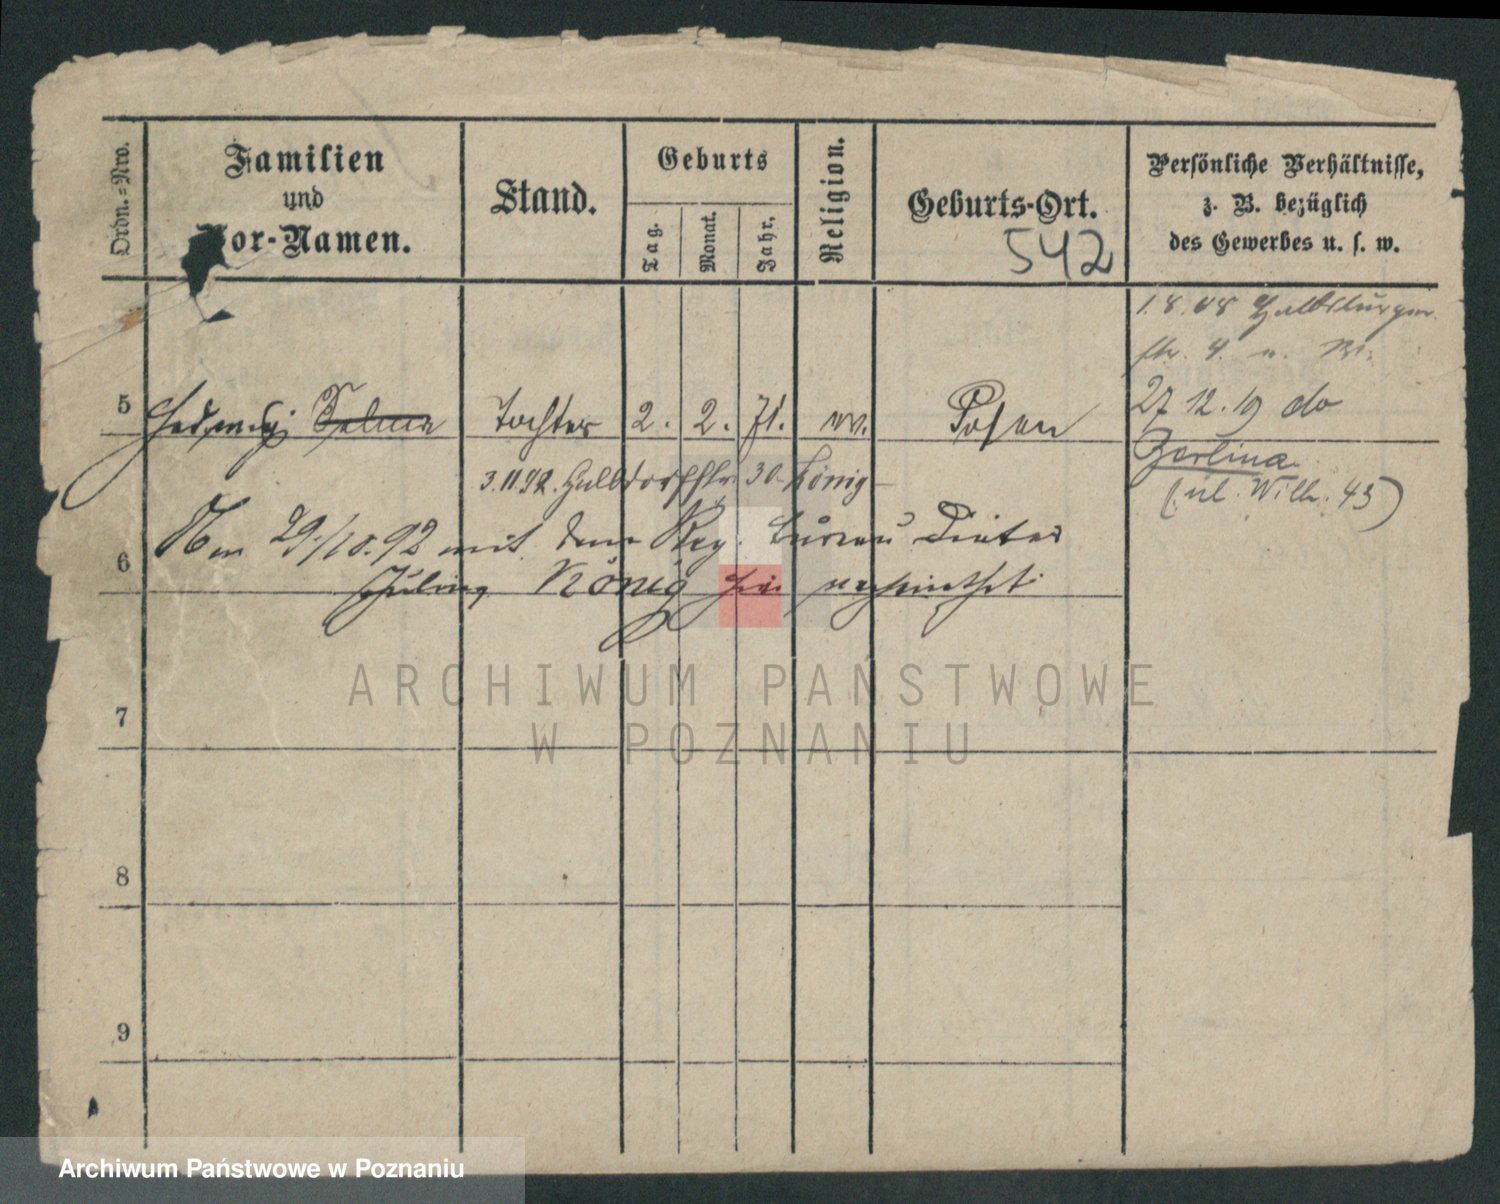 Ordn.=Nro.
Familien
und
Vor-Namen.
Stand.
Geburts
Tag.
Monat.
Jahr.
Religion.
Geburts-Ort.
542
Persönliche Verhältnisse,
z. B. bezüglich
des Gewerbes u. s. w.
1.8.08
str. 4. u.
5 Hedwig Selma Tochter 2. 2. 71. Posen
27 12. 19 do
Berlina
3.11.92. 30. König
(ul. Wilh. 43)
6 Am 29./10.92 mit dem Reg. Bureau Diätar
Julius König hier verheirathet
7
8
9
ARCHIWUM PAŃSTWOWE
W POZNANIU
Archiwum Państwowe w Poznaniu